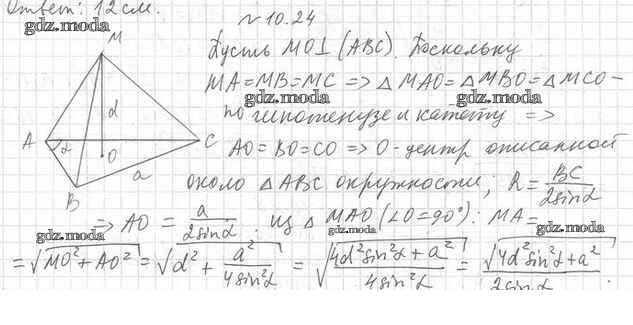 Ответ: 12 см.
gdz.moda
№ 10.24
M
d
A
α
O
C
B
a
Пусть MO⊥(ABC). Поскольку
MA=MB=MC => △MAO=△MBO=△MCO –
gdz.moda gdz.moda
по гипотенузе и катету =>
AO=BO=CO => O-центр описанной
около △ABC окружности; R = BC/2sinα
=> AO = a/2sinα. Из △MAO (∠O=90°): MA=
gdz.moda gdz.moda gdz.moda
= √MO²+AO² = √d² + a²/4sin²α = √4d²sin²α + a²/4sin²α = √4d²sin²α + a²/2sinα.